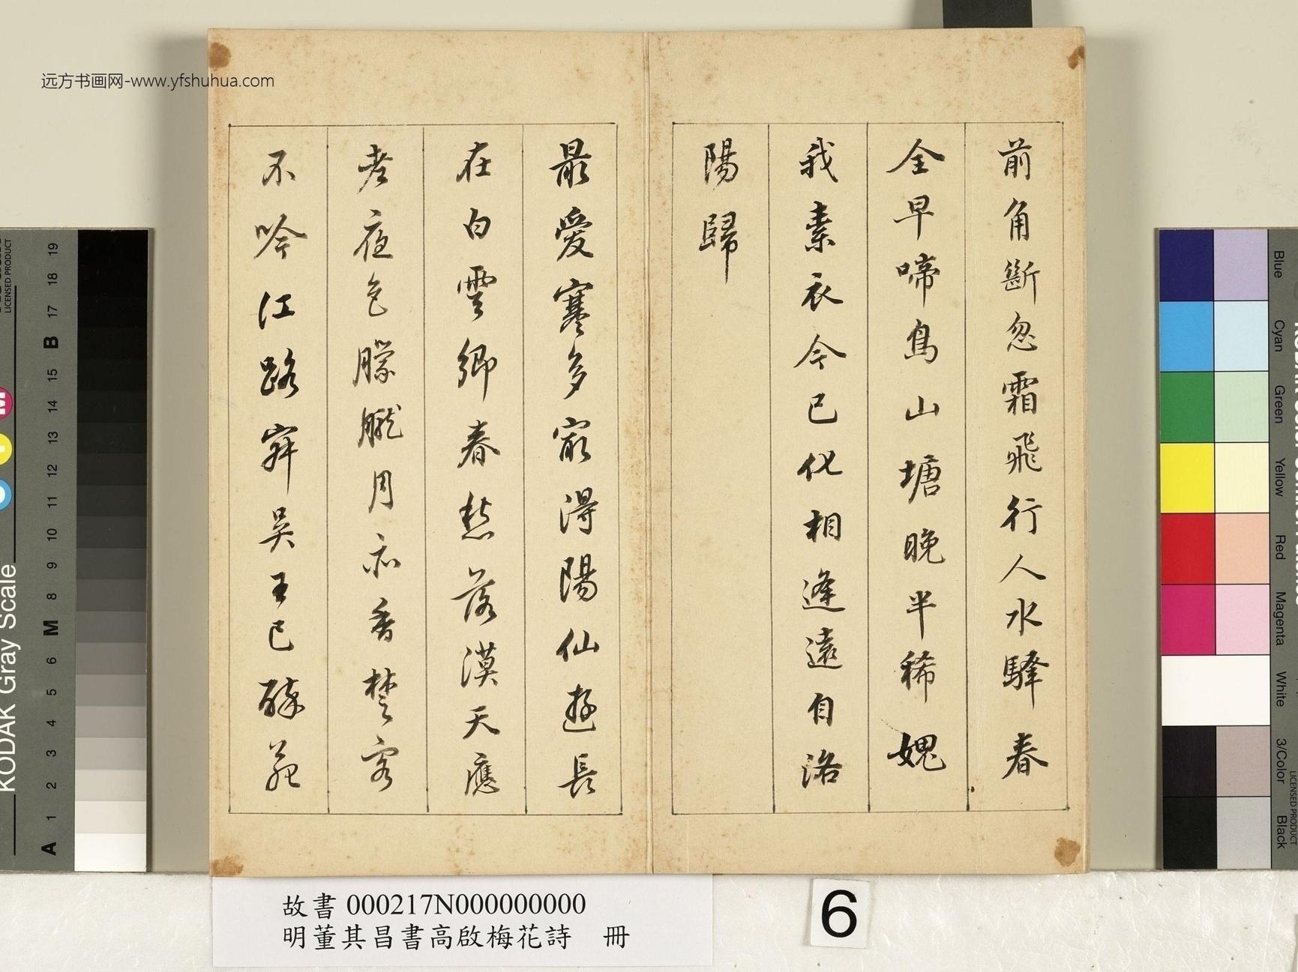 远方书画网-www.yfshuhua.com
前角斷忽霜飛行人水驛春
全早啼鳥山塘晚半稀媿
我素衣今已化相逢遠自洛
陽歸
最愛寒多最得陽仙遊長
在白雲鄉春愁落漠天應
老夜色朦朧月亦香楚客
不吟江路寂吳王已醉苑
故書 000217N000000000
明董其昌書高啟梅花詩 冊
6
KODAK Gray Scale
LICENSED PRODUCT
A 1 2 3 4 5 6 M 8 9 10 11 12 13 14 15 B 17 18 19
M
Blue
Cyan
Green
Yellow
Red
Magenta
White
3/Color
Black
LICENSED PRODUCT